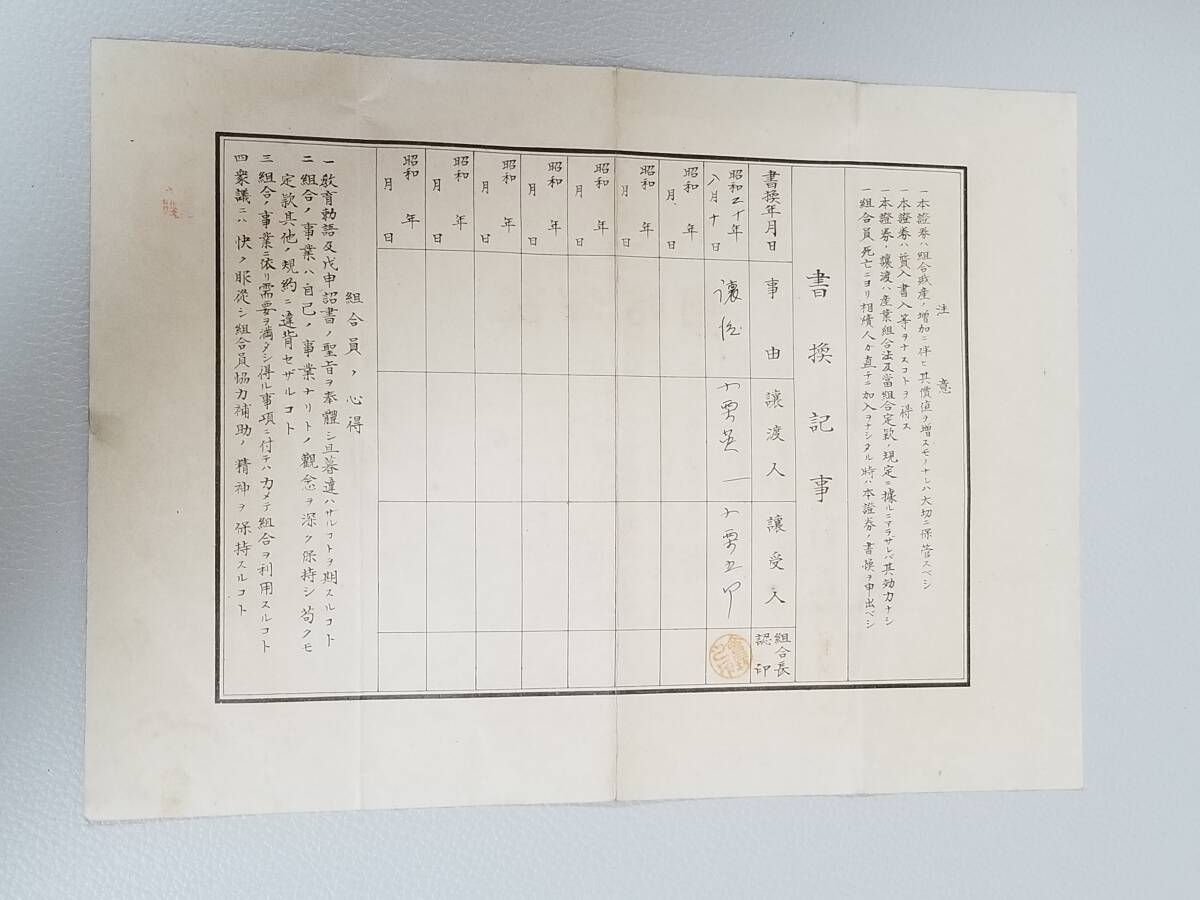 注意
一本證券ハ組合財産ノ増加ニ伴ヒ其價値ヲ増スモノナレハ大切ニ保管スベシ
一本證券ハ質入書入等ヲナスコトヲ得ス
一本證券ノ讓渡ハ産業組合法及當組合定款ノ規定ニ據ルニアラザレバ其効力ナシ
一組合員死亡ニヨリ相續人カ直チニ加入ヲナシタル時ハ本證券ノ書換ヲ申出ベシ
書換記事
書換年月日
事由
讓渡人
讓受人
組合長
認印
昭和二十年
八月十日
昭和 年
月 日
昭和 年
月 日
昭和 年
月 日
昭和 年
月 日
昭和 年
月 日
昭和 年
月 日
昭和 年
月 日
組合員ノ心得
一教育勅語及戊申詔書ノ聖旨ヲ奉體シ旦暮違ハサルコトヲ期スルコト
二組合ノ事業ハ自己ノ事業ナリトノ觀念ヲ深ク保持シ苟クモ
定款其他ノ規約ニ違背セザルコト
三組合ノ事業ニ依リ需要ヲ滿タシ得ル事項ニ付テハ力メテ組合ヲ利用スルコト
四衆議ニハ快ク服從シ組合員協力補助ノ精神ヲ保持スルコト